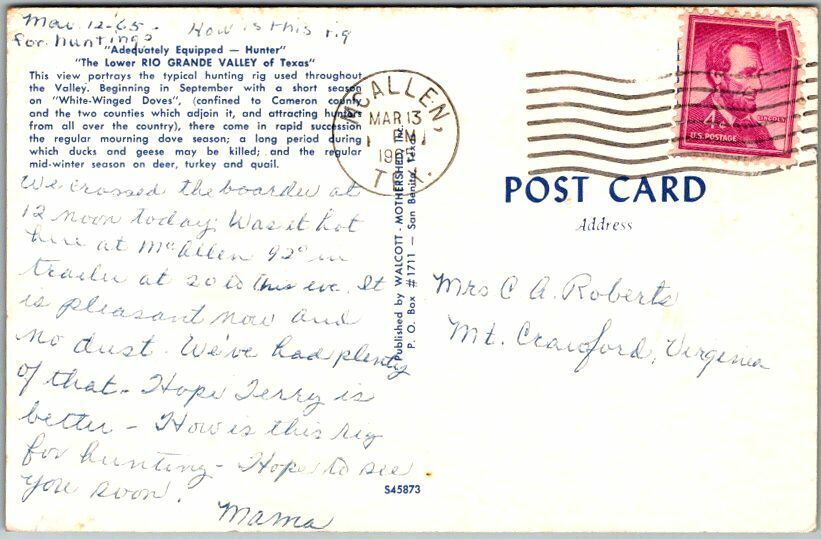 Mar. 12-65- How is this rig
for huntings
"Adequately Equipped — Hunter"
"The Lower RIO GRANDE VALLEY of Texas"
This view portrays the typical hunting rig used throughout
the Valley. Beginning in September with a short season
on "White-Winged Doves", (confined to Cameron county
and the two counties which adjoin it, and attracting hunters
from all over the country), there come in rapid succession
the regular mourning dove season; a long period during
which ducks and geese may be killed; and the regular
mid-winter season on deer, turkey and quail.
We crossed the boarder at
12 noon today; Was it hot
here at McAllen 92° in
trailer at this eve. It
is pleasant now and
no dust. We've had plenty
of that. Hope Terry is
better - How is this rig
for hunting - Hope to see
you soon.
Mama
Published by WALCOTT - MOTHERSHED INC.
P. O. Box #1711 — San Benito, Texas
S45873
McALLEN,
MAR 13
PM
TEX.
LINCOLN
4¢
U.S. POSTAGE
POST CARD
Address
Mrs C A. Roberts
Mt. Crawford, Virginia